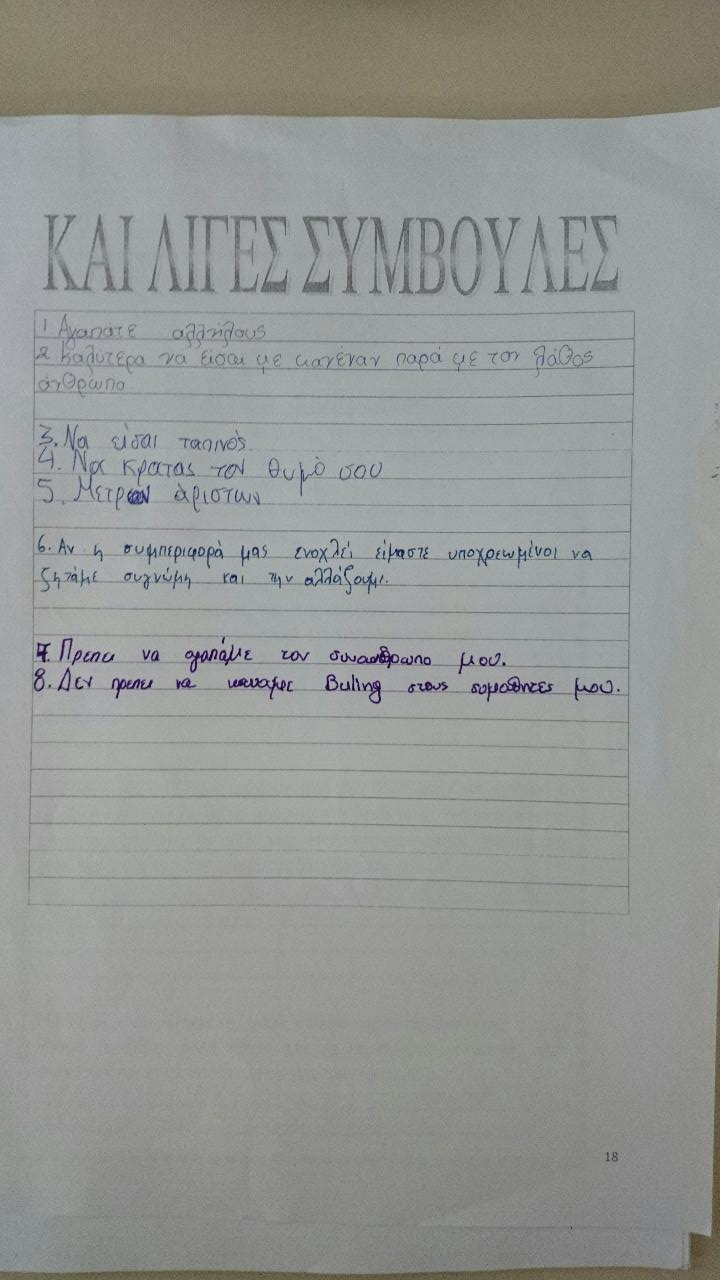 ΚΑΙ ΛΙΓΕΣ ΣΥΜΒΟΥΛΕΣ
1 Αγαπάτε αλλήλους
2 Καλύτερα να είσαι με κανέναν παρά με τον λάθος
άνθρωπο
3. Να είσαι ταπινός.
4. Να κρατας τον θυμό σου
5. Μετρον άριστων
6. Αν η συμπεριφορά μας ενοχλεί είμαστε υποχρεωμένοι να
ζητάμε συγνώμη και την αλλάζουμε.
7. Πρεπει να αγαπάμε τον συνανθρωπο μου.
8. Δεν πρεπει να κανουμε Buling στους συμαθητες μου.
18